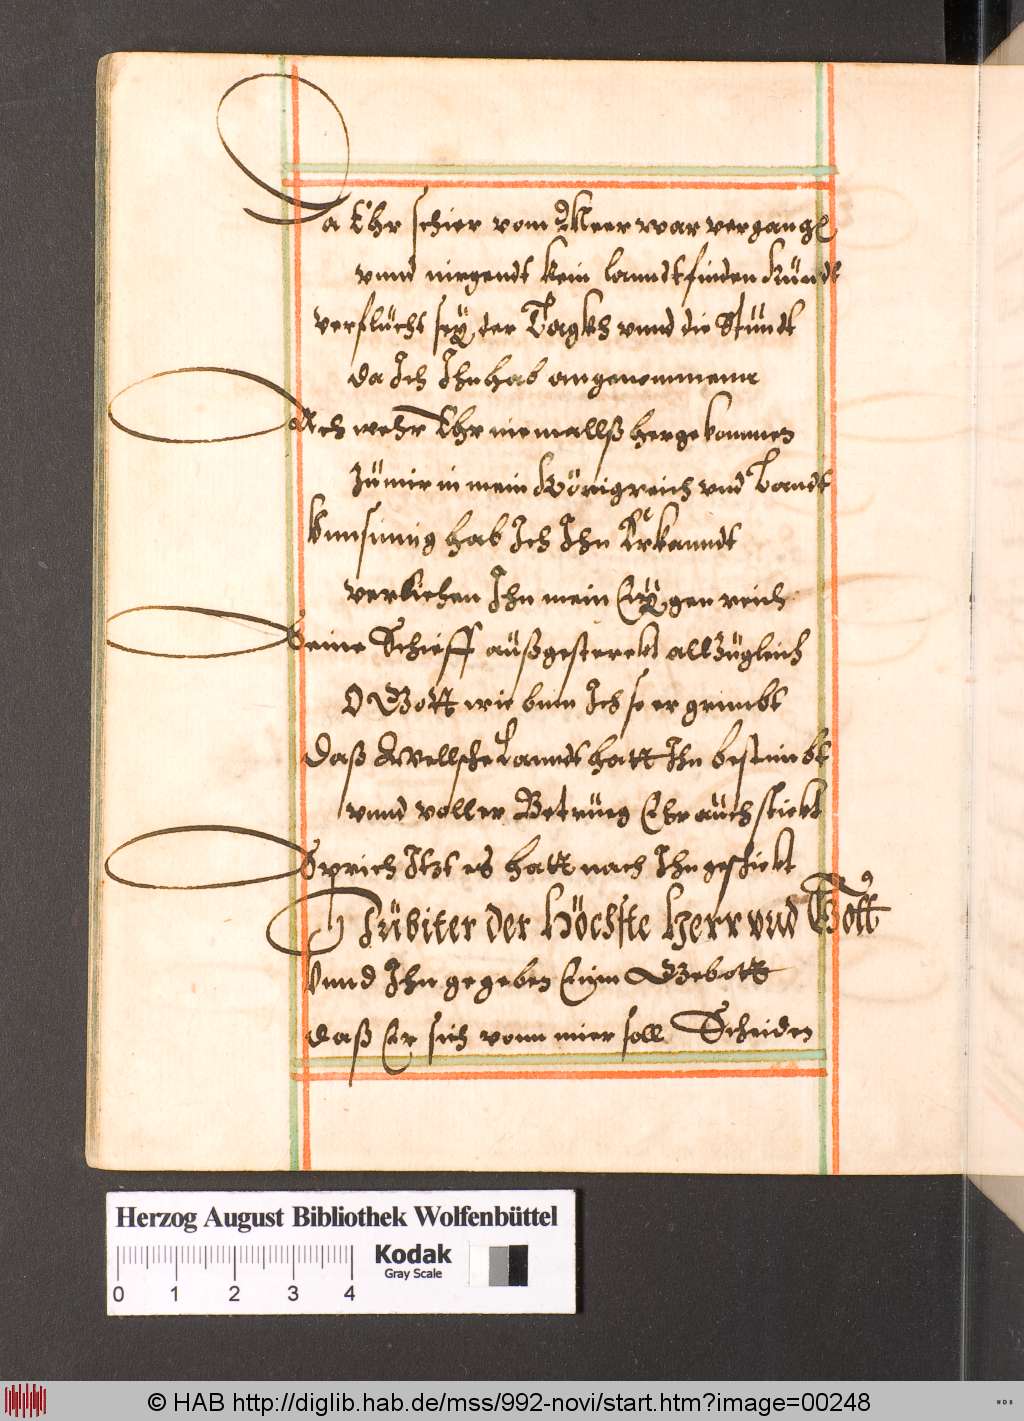 Da Ehr schier vom Meer war vergangen
vnnd nirgendt kein lanndt finden kündt
verflücht seÿ der Tagkh vnnd die Stündt
da Ich Ihn hab angenommenn
Ach wehr Ehr niemallß hergekommen
zü mir in mein Königreich vnd Landt
Vnnsinnig hab Ich Ihn Erkanndt
verliehen Ihn mein Eÿgen reich
Seine Schieff außgesterckt all zügleich
O Gott wie binn Ich so ergrimbt
Daß Wellsche Lanndt hatt Ihn bestimbt
vnnd voller Betrüg Ehr aüch stickt
Sprich Itzt es hatt nach Ihn geschickt
Jübiter der Höchste Herr vnd Gott
Vnnd Ihn gegeben Einn Gebott
daß Er sich vonn mier soll Scheiden
Herzog August Bibliothek Wolfenbüttel
Kodak
Gray Scale
0 1 2 3 4
© HAB http://diglib.hab.de/mss/992-novi/start.htm?image=00248